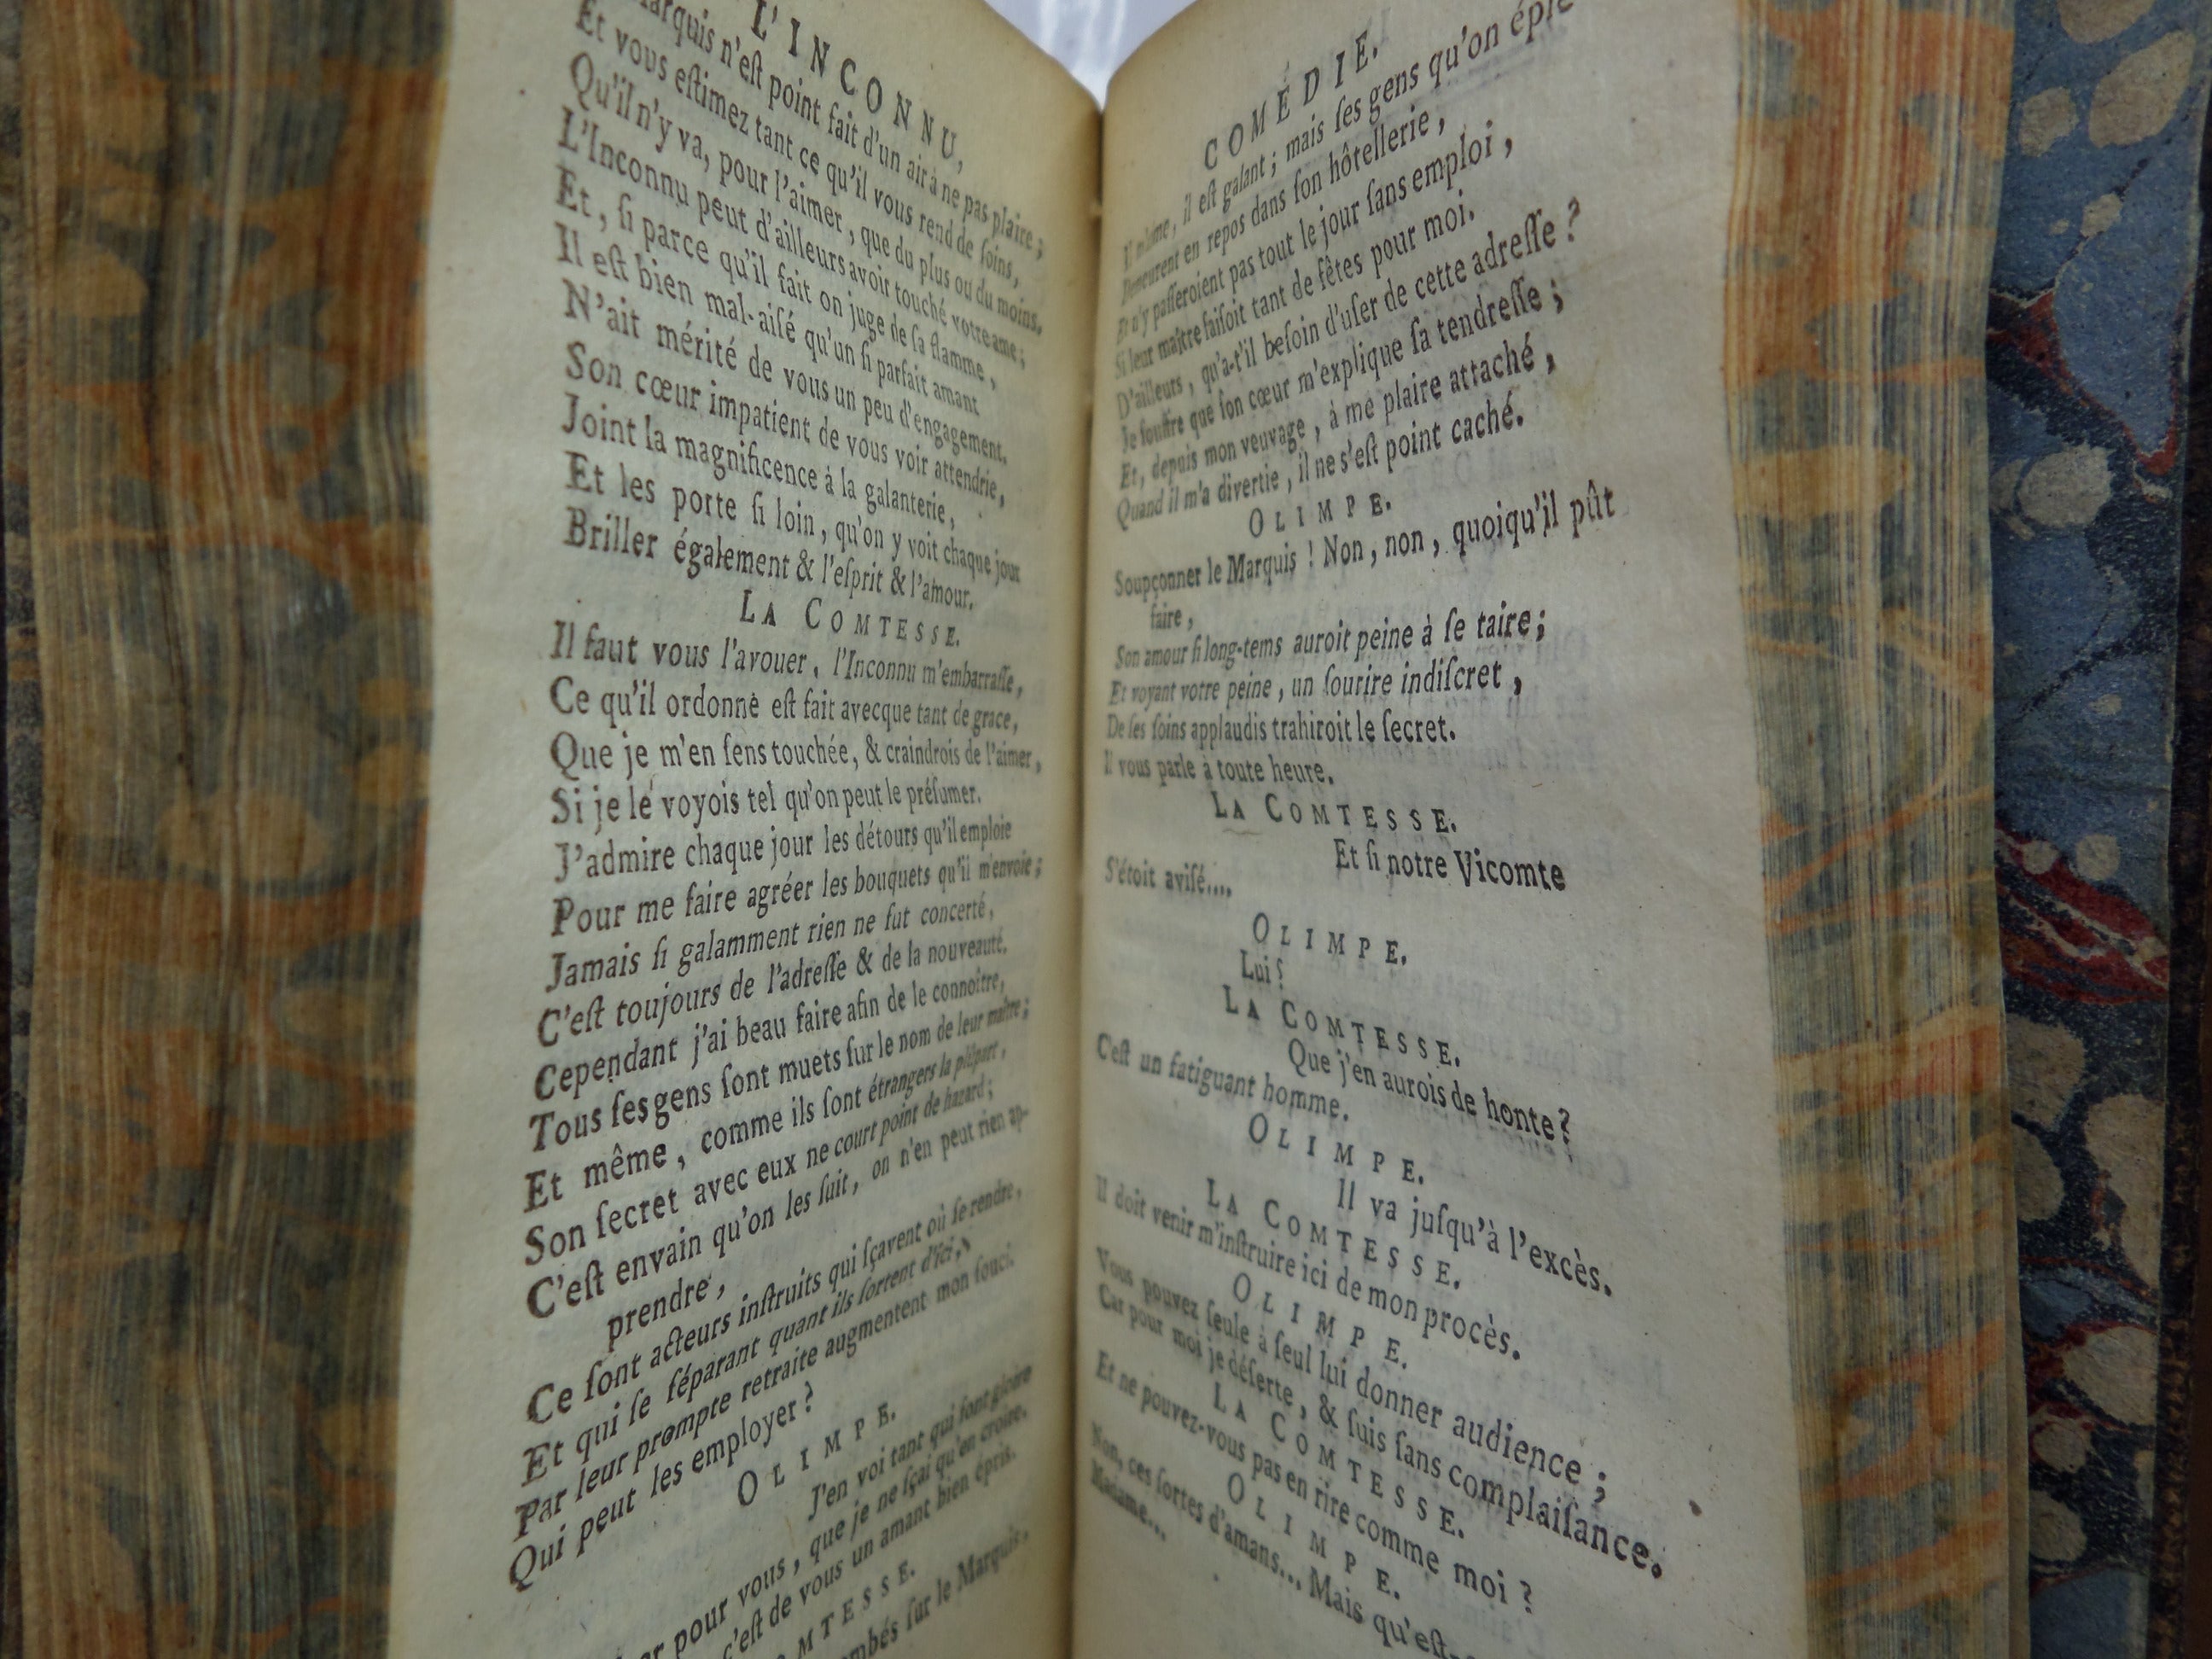 L'INCONNU,
Marquis n'eſt point fait d'un air à ne pas plaire ;
Et vous eſtimez tant ce qu'il vous rend de ſoins,
Qu'il n'y va, pour l'aimer, que du plus ou du moins.
L'Inconnu peut d'ailleurs avoir touché votre ame ;
Et, ſi parce qu'il fait on juge de ſa flamme,
Il eſt bien mal-aiſé qu'un ſi parfait amant
N'ait mérité de vous un peu d'engagement.
Son cœur impatient de vous voir attendrie,
Joint la magnificence à la galanterie,
Et les porte ſi loin, qu'on y voit chaque jour
Briller également & l'eſprit & l'amour.
LA COMTESSE.
Il faut vous l'avouer, l'Inconnu m'embarraſſe,
Ce qu'il ordonne eſt fait avecque tant de grace,
Que je m'en ſens touchée, & craindrois de l'aimer,
Si je le voyois tel qu'on peut le préſumer.
J'admire chaque jour les détours qu'il emploie
Pour me faire agréer les bouquets qu'il m'envoie ;
Jamais ſi galamment rien ne fut concerté,
C'eſt toujours de l'adreſſe & de la nouveauté.
Cependant j'ai beau faire afin de le connoître,
Tous ſes gens ſont muets ſur le nom de leur maître ;
Et même, comme ils ſont étrangers la plûpart,
Son ſecret avec eux ne court point de hazard ;
C'eſt envain qu'on les ſuit, on n'en peut rien ap-
prendre,
Ce ſont acteurs inſtruits qui ſçavent où ſe rendre,
Et qui ſe ſéparant quant ils ſortent d'ici,
Par leur prompte retraite augmentent mon ſouci.
Qui peut les employer ?
OLIMPE.
J'en voi tant qui font gloire
pour vous, que je ne ſçai qu'en croire.
c'eſt de vous un amant bien épris.
COMTESSE.
ombés ſur le Marquis.
COMÉDIE.
Il m'aime, il eſt galant ; mais ſes gens qu'on épie
Demeurent en repos dans ſon hôtellerie,
Et n'y paſſeroient pas tout le jour ſans emploi,
Si leur maître faiſoit tant de fêtes pour moi.
D'ailleurs, qu'a-t'il beſoin d'uſer de cette adreſſe ?
Je ſouffre que ſon cœur m'explique ſa tendreſſe ;
Et, depuis mon veuvage, à me plaire attaché,
Quand il m'a divertie, il ne s'eſt point caché.
OLIMPE.
Soupçonner le Marquis ! Non, non, quoiqu'il pût
faire,
Son amour ſi long-tems auroit peine à ſe taire ;
Et voyant votre peine, un ſourire indiſcret,
De ſes ſoins applaudis trahiroit le ſecret.
Il vous parle à toute heure.
LA COMTESSE.
Et ſi notre Vicomte
S'étoit aviſé....
OLIMPE.
Lui ?
LA COMTESSE.
Que j'en aurois de honte ?
C'eſt un fatiguant homme.
OLIMPE.
Il va juſqu'à l'excès.
LA COMTESSE.
Il doit venir m'inſtruire ici de mon procès.
OLIMPE.
Vous pouvez ſeule à ſeul lui donner audience ;
Car pour moi je déſerte, & ſuis ſans complaiſance.
LA COMTESSE.
Et ne pouvez-vous pas en rire comme moi ?
OLIMPE.
Non, ces ſortes d'amans... Mais qu'eſt-
Madame...